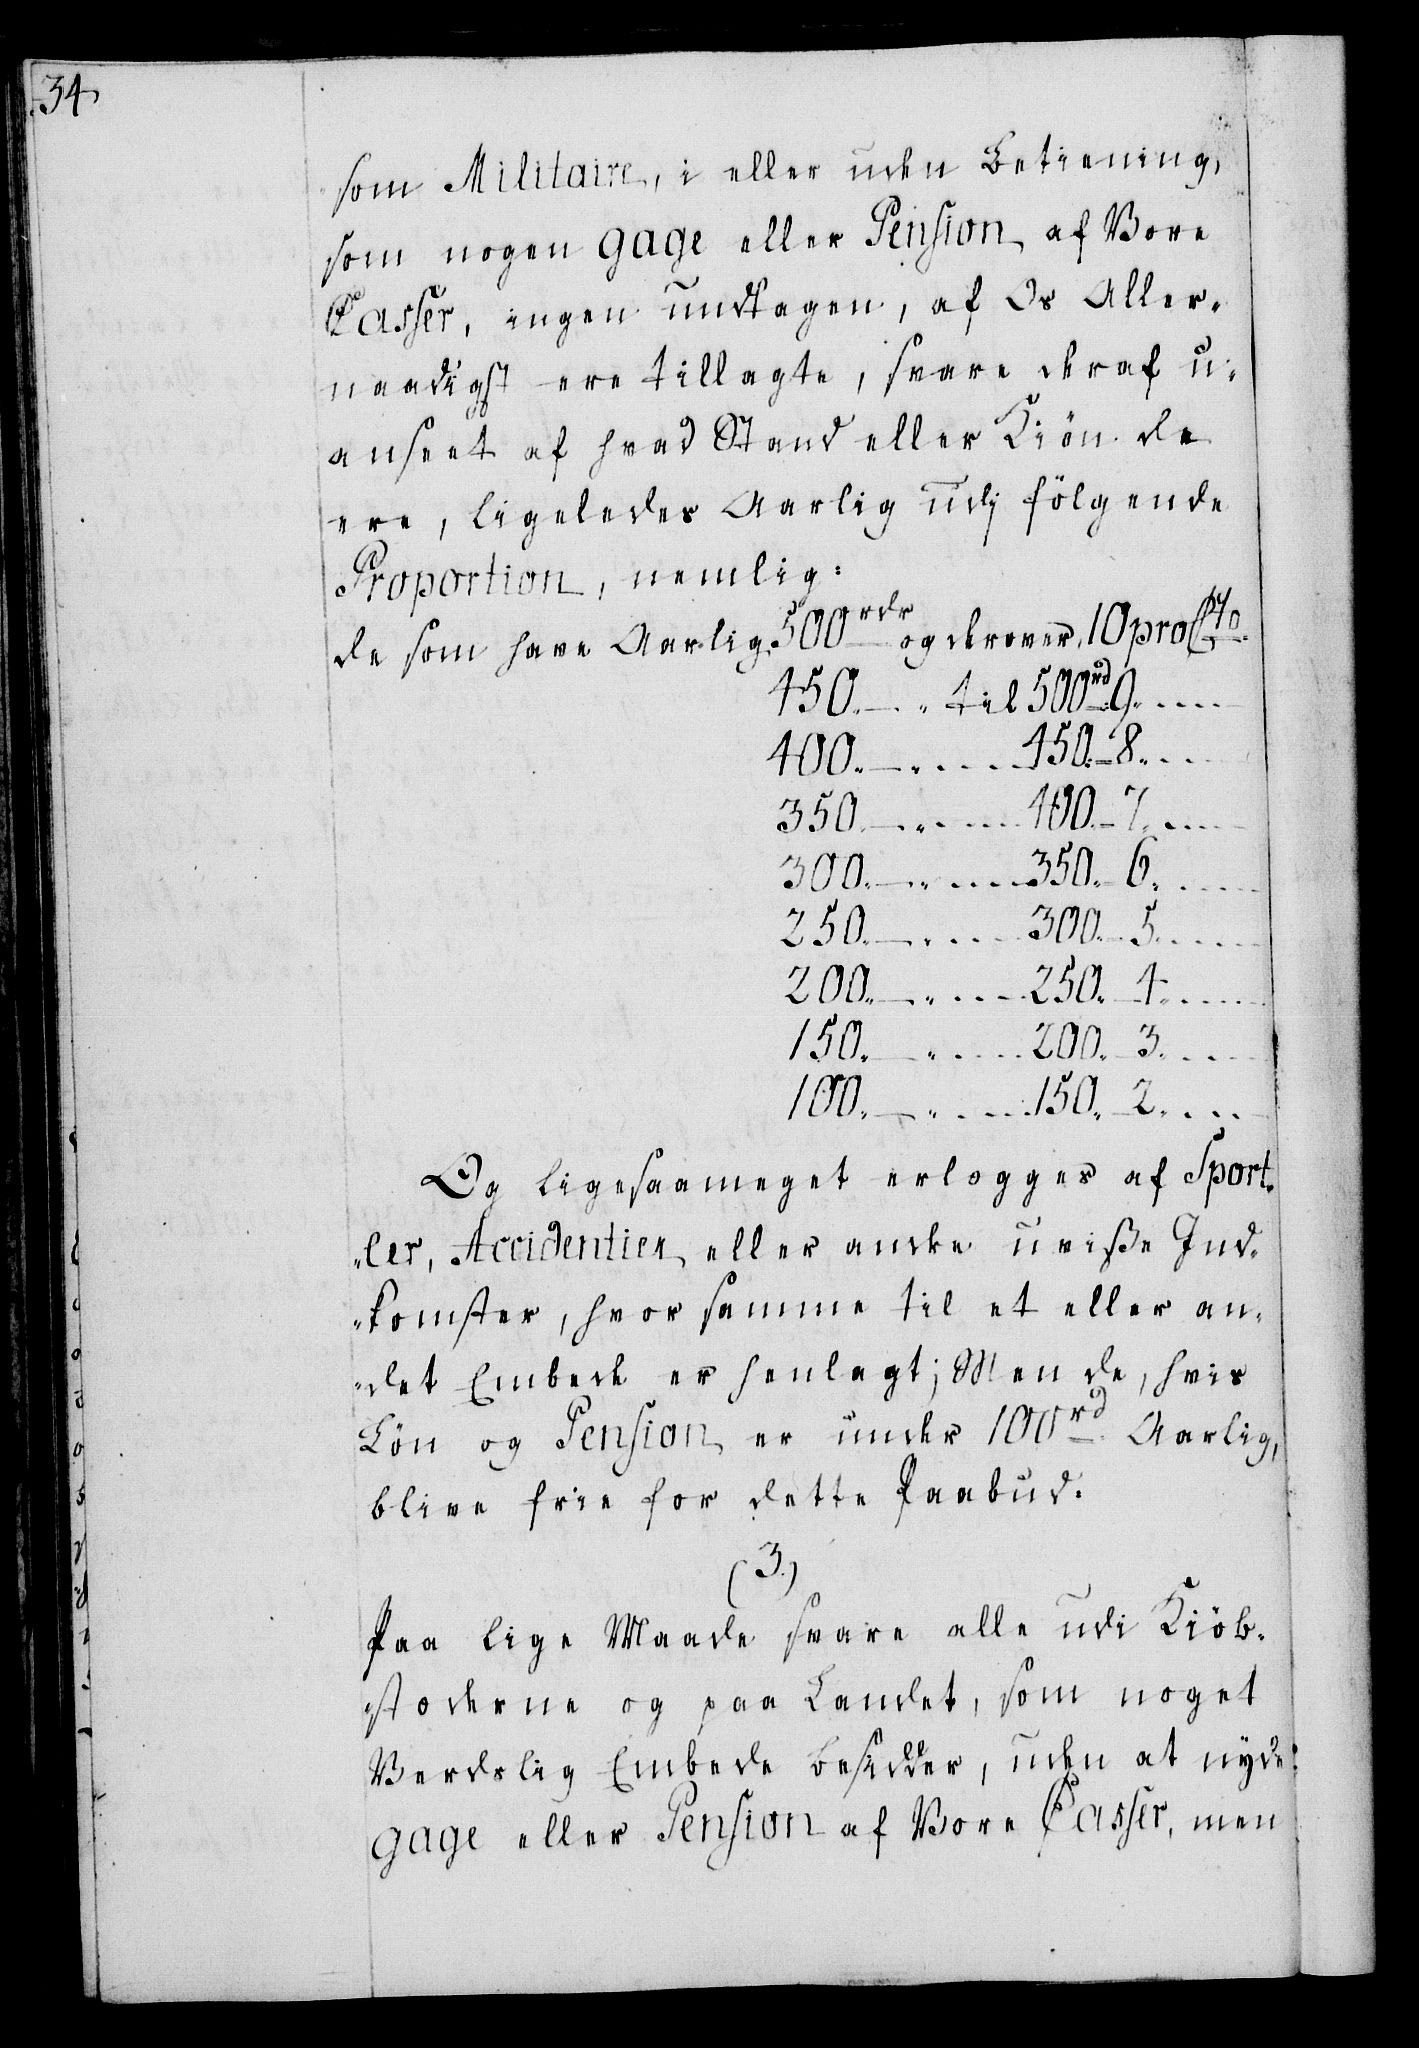 34
som Militaire, i eller uden Betiening,
som nogen gage eller Pension af Vore
Casser, ingen undtagen, af Os Aller-
naadigst ere tillagte, svare deraf u-
anseet af hvad Stand eller Kiön de
ere, ligeledes Aarlig udj fölgende
Proportion, nemlig:
de som have Aarlig 500 rdr og derover, 10 pro Cto
450. — . „ til 500 rd 9. ....
400. — . .... 450. – 8. ....
350. — „ .... 400. – 7. ....
300. — „ .... 350. – 6. ....
250. — . .... 300. – 5. ....
200. — „ .... 250. – 4. ....
150. — „ .... 200. – 3. ....
100. — „ .... 150. – 2. ....
Og ligesaameget erlegges af Sport-
„ler, Accidentier eller andre uviße Ind-
„komster, hvor samme til et eller an-
„det Embede er henlagt; Men de, hvis
Lön og Pension er under 100 rd Aarlig,
blive frie for dette Paabud.
(3.)
Paa lige Maade svare alle udi Kiöb-
„stederne og paa Landet, som noget
Verdslig Embede besidder, uden at nyde
gage eller Pension af Vore Casser, men